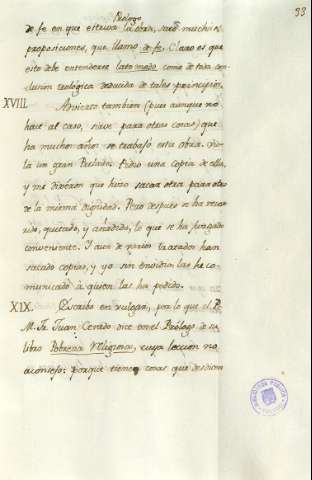 Prologo
33
de fe en que estriva la obra, saco muchisis
proposiciones, que llamo de fe. Claro es que
esto debe entenderse lato modo, como de toda con-
clusion teologica deducida de tales principios.
XVIII. Advierto tambien (pues aunque no
hace al caso, sirve para otras cosas) que
ha muchos años se trabajó esta obra.
la un gran Prelado: Pidio una copia de ella,
y me dixeron que hizo sacar otra para otro
de la misma dignidad. Pero despues se ha reco-
rido, quitado, y añadido, lo que se ha juzgado
conveniente. I aun de varios tratados han
sacado copias, y yo sin envidia las he co-
municado à quien las ha pedido.
XIX. Escribo en vulgar, por lo que el P.
M. Fr. Juan Cerado dice en el Prologo de su
libro Pobreza Religiosa, cuya leccion no
aconsejo: porque tiene cosas que desdicen